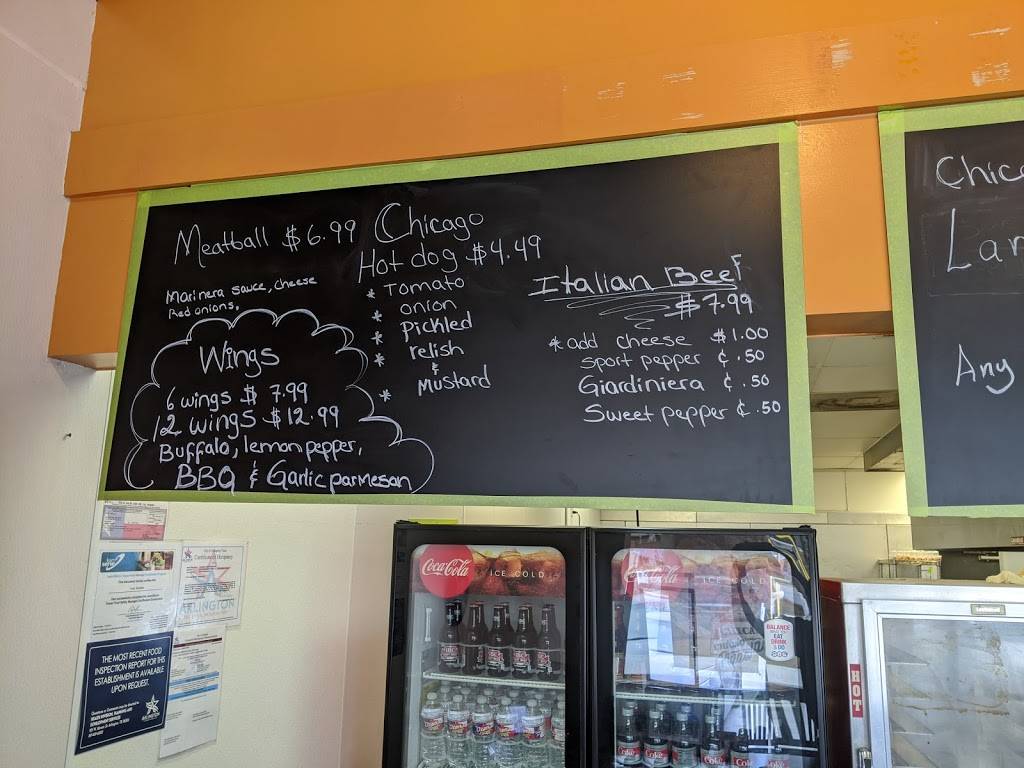 Meatball $6.99
Marinera sauce, cheese
Red onions.
Wings
6 wings $ 7.99
12 wings $12.99
Buffalo, lemon pepper,
BBQ & Garlic parmesan
Chicago
Hot dog $4.49
* Tomato
* onion
* Pickled
* relish
&
* Mustard
Italian Beef
$7.99
*add cheese $1.00
sport pepper ¢ .50
Giardiniera ¢ .50
Sweet pepper ¢ .50
Chic
Lar
Any
Coca-Cola
ICE COLD
Coca-Cola
ICE COLD
BALANCE
WHAT YOU
EAT
DRINK
& DO
HOT
ARLINGTON
THE MOST RECENT FOOD
INSPECTION REPORT FOR THIS
ESTABLISHMENT IS AVAILABLE
UPON REQUEST.
ARLINGTON
Coke
Coke